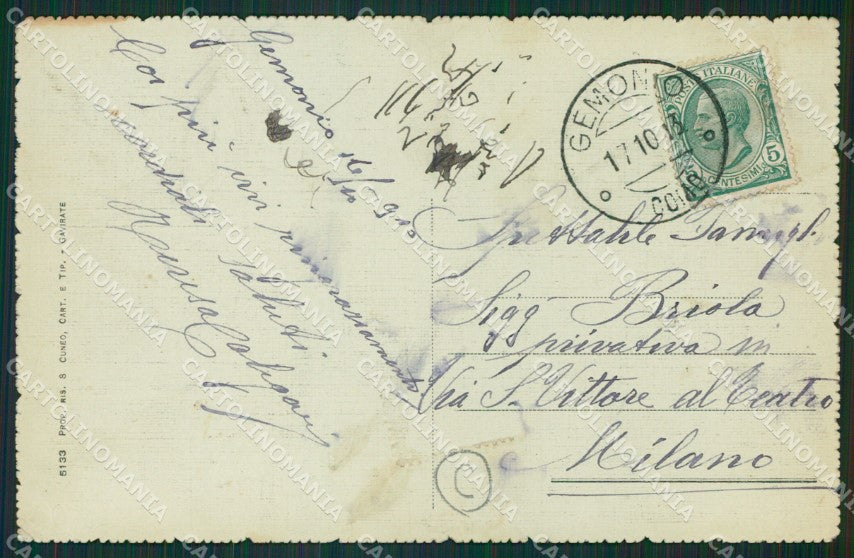 Gemonio 16/10 910
Coi più vivi ringraziamenti
cordiali saluti
Marisa
GEMONIO
17.10.15
COMO
POSTE ITALIANE
5
CENTESIMI
Spettabile Famigl.
Sigg Briola
privativa in
Via S. Vittore al Teatro
Milano
C
5133 PROP. RIS. 8 CUNEO, CART. E TIP. - GAVIRATE
CARTOLINOMANIA